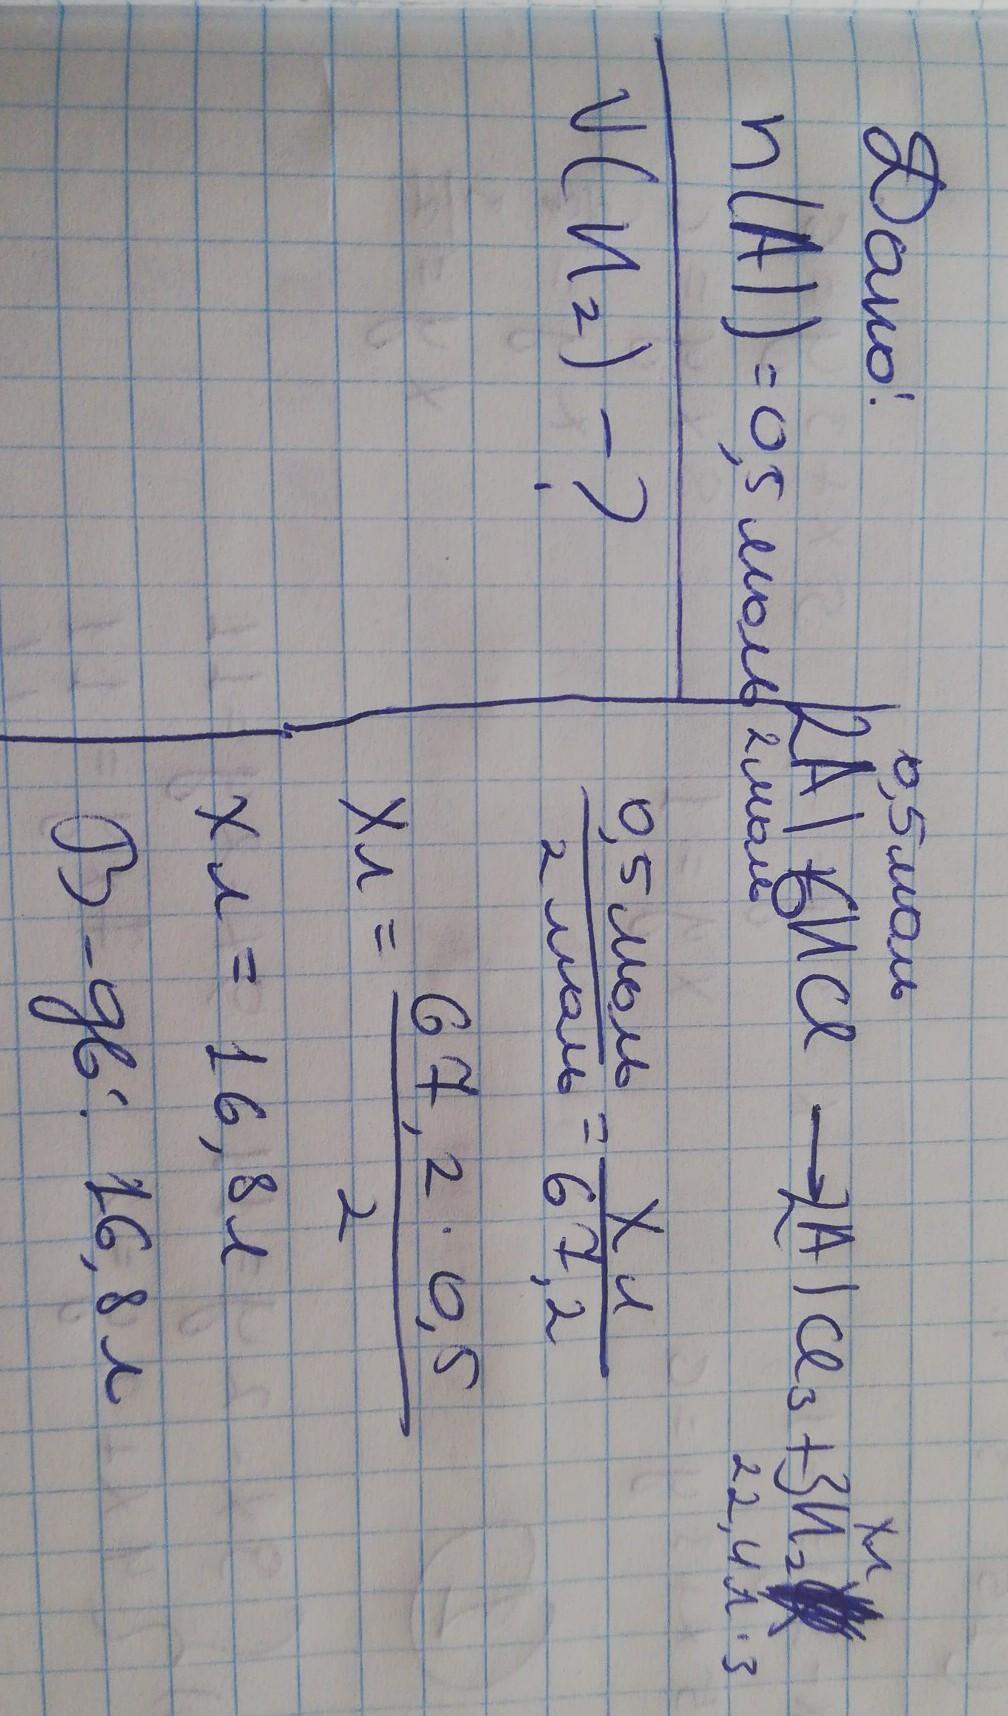 Дано:
n(Al) = 0,5 моль
V(H₂) - ?
0,5 моль xл
2Al + 6HCl → 2AlCl₃ + 3H₂
2 моль 22,4 л · 3
0,5 моль / 2 моль = X л / 67,2
Xл = 67,2 · 0,5 / 2
Xл = 16,8 л
В-дь: 16,8 л